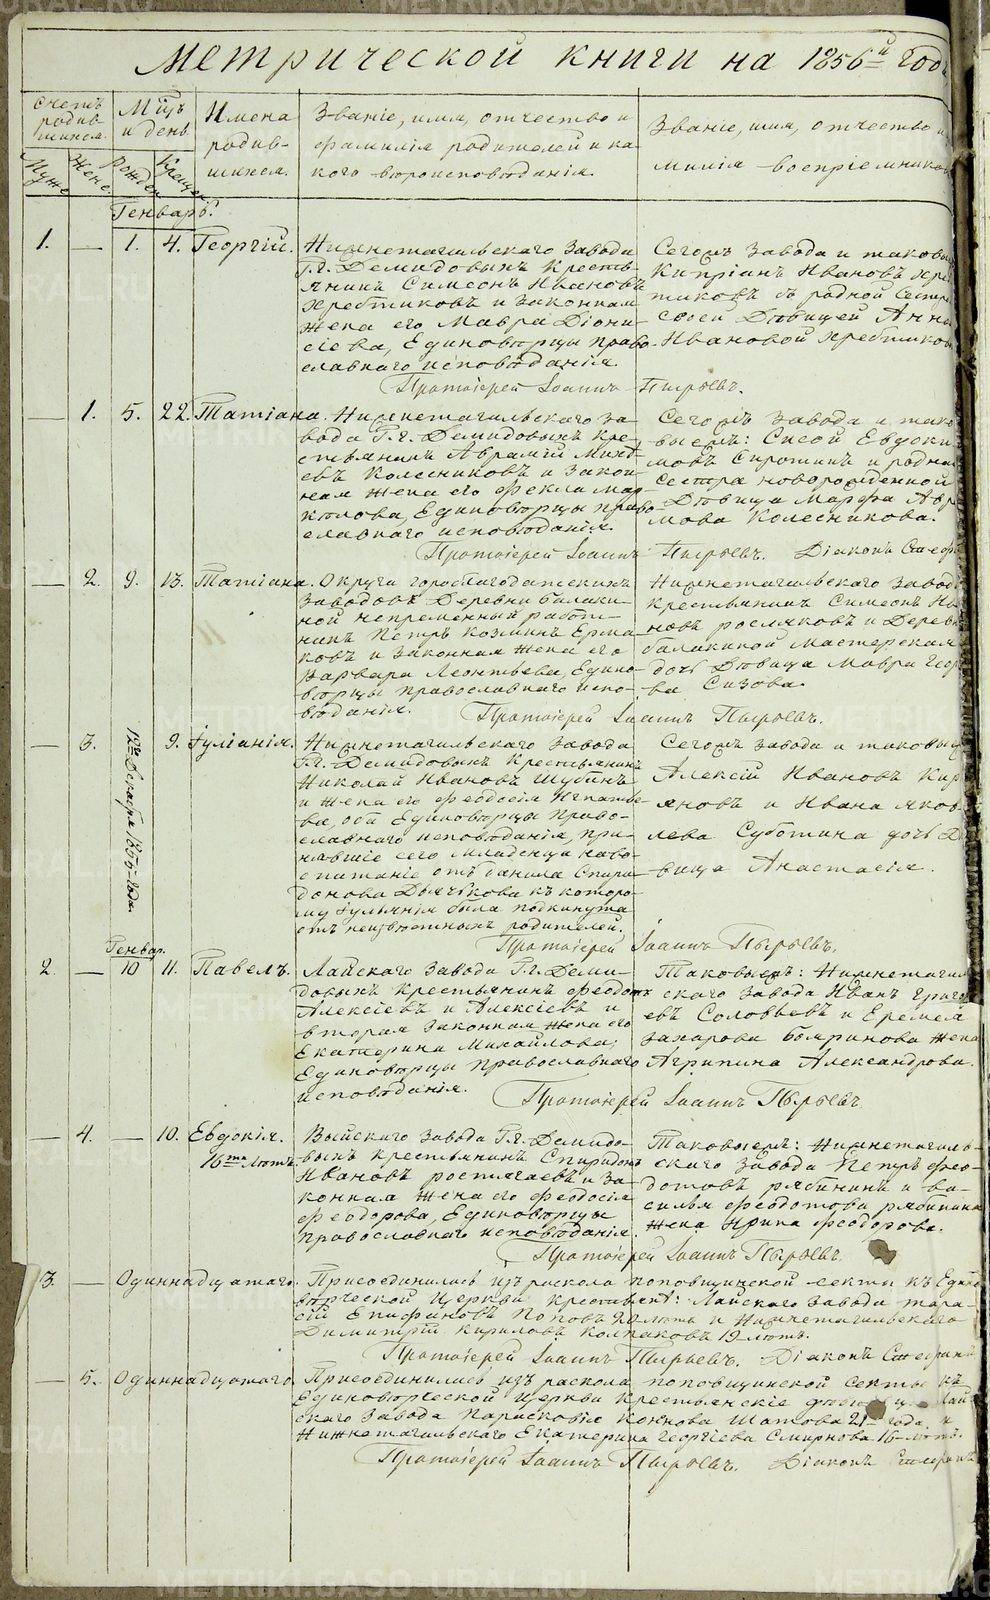 Метрической книги на 1856й годъ
Счетъ родив-
шихся.
Мужс
Женс.
Мцъ
и день
Рожден
Крещен
Имена
родив-
шихся.
Званіе, имя, отчество и
фамилія родителей и ка-
кого вѣроисповѣданія.
Званіе, имя, отчество и
милія воспріемников
Генварь.
1. — 1. 4. Георгій.
Нижнетагильскаго завода
Гг. Демидовыхъ Кресть-
янинъ Симеонъ Ивановъ
Хребтиковъ и законная
жена его Мавра Діони-
сіева, Единовѣрцы право-
славнаго исповѣданія.
Сегожъ завода и таковы
Кипріанъ Ивановъ Хреб
тиковъ съ родной сестр
своей Дѣвицей Анно
Ивановой Хребтиково
Протоіерей Іоаннъ Пырьевъ.
— 1. 5. 22. Татіана.
Нижнетагильскаго за-
вода Гг. Демидовыхъ кре-
стьянинъ Аврамій Михе-
евъ Колесниковъ и закон-
ная жена его Фекла Мар-
кѣлова, Единовѣрцы право-
славнаго исповѣданія.
Сегожъ завода и тако
выежъ: Сисой Евдоки
мовъ Сиротинъ и родная
сестра новорожденной
Дѣвица Марфа Авра
мова Колесникова.
Протоіерей Іоаннъ Пырьевъ. Діаконъ Стеф
— 2. 9. 13. Татіана.
Округи гороблагодатскихъ
заводовъ Деревни балаки-
ной непременный работ-
никъ Петръ Козминъ Ерма-
ковъ и законная жена его
Варвара Леонтьева, Едино-
вѣрцы православнаго испо-
вѣданія.
Нижнетагильскаго завод
крестьянинъ Симеонъ Ива
новъ росляковъ и Деревн
балакиной Мастерская
дочь Дѣвица Мавра Геор
ва Сизова.
Протоіерей Іоаннъ Пырьевъ.
— 3. 12го Декабря 1855 года. 9. Іуліанія.
Нижнетагильскаго завода
Гг. Демидовыхъ Крестьянинъ
Николай Ивановъ Шубинъ
и жена его Феодосія Игнатье-
ва, оба Единовѣрцы право-
славнаго исповѣданія, при-
нявшіе сего Младенца на во-
спитаніе отъ данила Спири-
донова Дьячкова къ которо-
му Іульянія была подкинута
отъ неизвѣстныхъ родителей.
Сегожъ завода и таковыи
Алексій Ивановъ Кир
яновъ и Ивана яков
лева Суботина дочь Д
вица Анастасія.
Протоіерей Іоаннъ Пырьевъ.
Генвар.
2. — 10 11. Павелъ.
Лайскаго завода Гг. Деми-
довыхъ крестьянинъ Феодотъ
Алексіевъ и Алексіевъ и
вторая законная жена его
Екатерина Михайлова,
Единовѣрцы православнаго
исповѣданія.
Таковыежъ: Нижнетагил
скаго завода Иванъ Григо
евъ Соловьевъ и Еремея
Захарова бояринова жена
Агрипина Александрова.
Протоіерей Іоаннъ Пырьевъ
— 4. — 10. Евдокія.
16ти лѣтъ.
Выйскаго завода Гг. Демидо-
выхъ крестьянинъ Спиридонъ
Ивановъ ростягаевъ и за-
конная жена его Феодосія
Феодорова, Единовѣрцы
православнаго исповѣданія.
Таковыежъ: Нижнетагиль-
скаго завода Петръ Фео-
дотовъ рябининъ и ва-
силья Феодотова рябинина
жена Ирина Феодорова.
Протоіерей Іоаннъ Пырьевъ.
3. — Одиннадцатаго.
Присоединились изъ раскола поповщинской секты къ Едино
вѣрческой Церкви крестьяне: Лайскаго завода тара-
сій Епифановъ Поповъ 20 лѣтъ и Нижнетагильскаго
Димитрій Кириловъ Колпаковъ 19 лѣтъ.
Протоіерей Іоаннъ Пырьевъ. Діаконъ Стефанъ
— 5. Одиннадцатаго.
Присоединились изъ раскола поповщинской секты къ
Единовѣрческой Церкви Крестьянскіе Лай
скаго завода Парасковія Конова Шатова 21 года и
Нижнетагильскаго Екатерина Георгіева Смирнова 16 лѣтъ.
Протоіерей Іоаннъ Пырьевъ. Діаконъ Стефанъ
METRIKI.GASO-URAL.RU